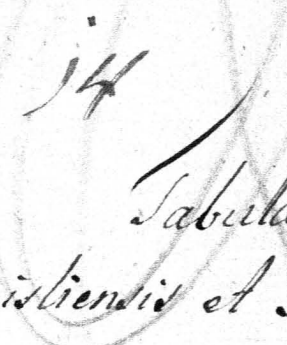 14
Tabula
istiensis et